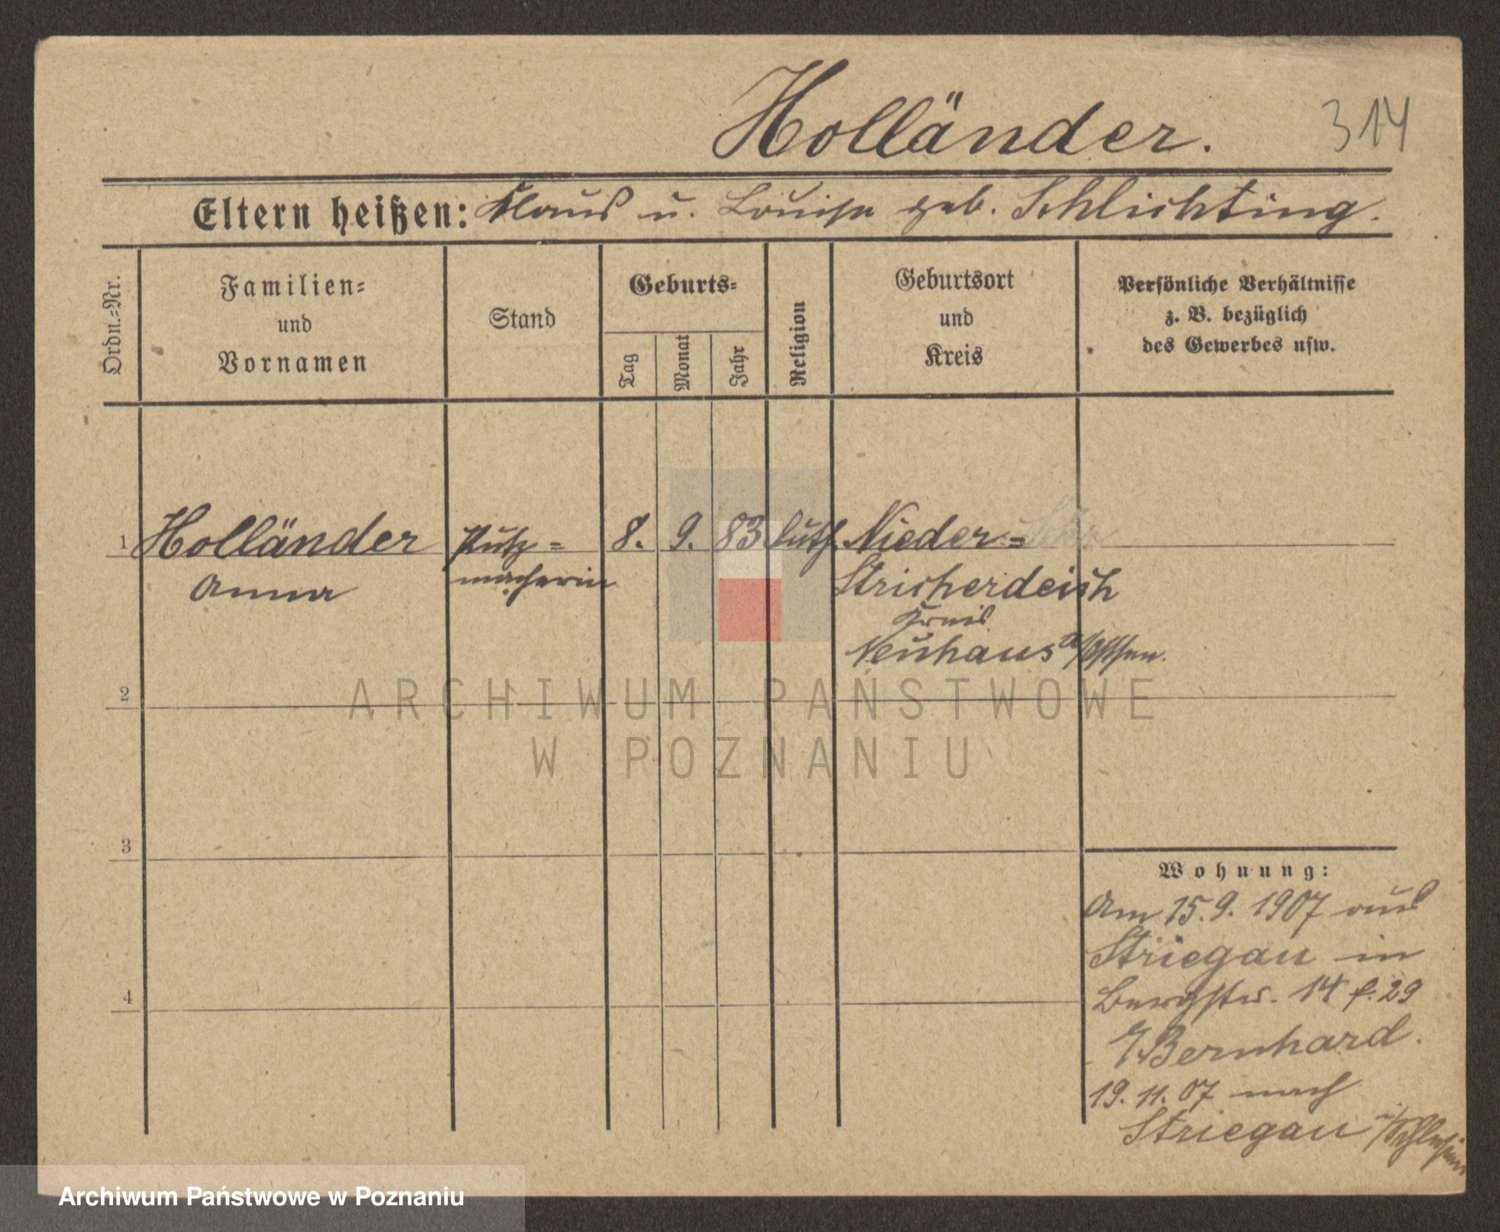 Holländer.
314
Eltern heißen: Klaus u. Louise geb. Schlichting.
Ordn.-Nr.
Familien-
und
Vornamen
Stand
Geburts-
Tag
Monat
Jahr
Religion
Geburtsort
und
Kreis
Persönliche Verhältnisse
z. B. bezüglich
des Gewerbes usw.
1 Holländer Putz= 8. 9. 83 luth. Nieder=
Anna macherin Stricherdeich
Kreis
Neuhaus a/Osten.
2
3
4
Wohnung:
Am 15.9.1907 aus
Striegau in
Bergstr. 14 f. 29
Bernhard.
19.11.07 nach
Striegau i/Schlesien
ARCHIWUM PAŃSTWOWE
W POZNANIU
Archiwum Państwowe w Poznaniu